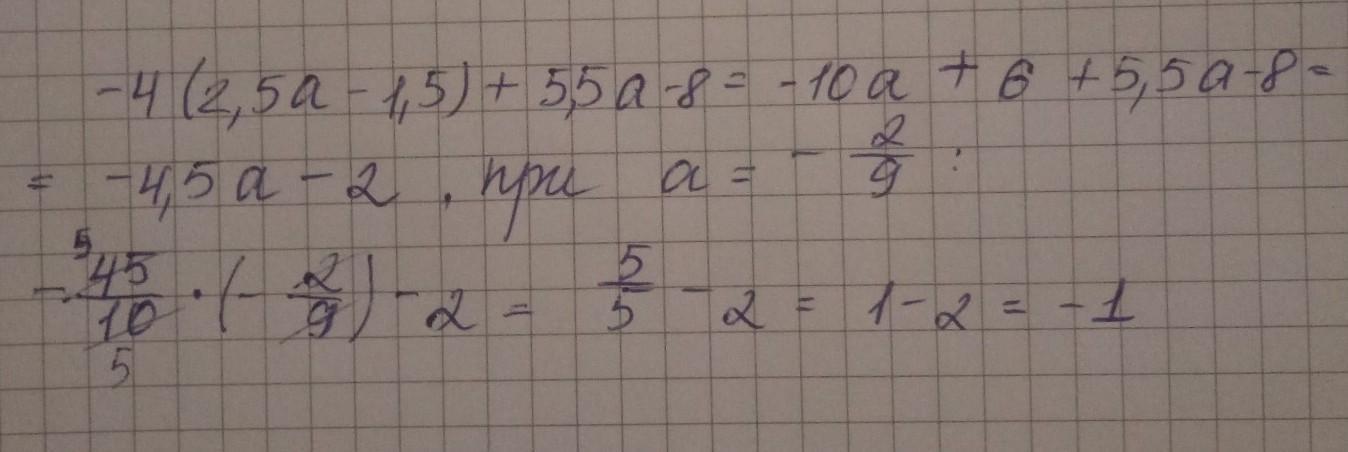 -4(2,5a-1,5)+5,5a-8= -10a + 6 +5,5a-8=
= -4,5a-2, при a = - 2/9 :
- 45/10 · (- 2/9) - 2 = 5/5 - 2 = 1-2 = -1
5 5